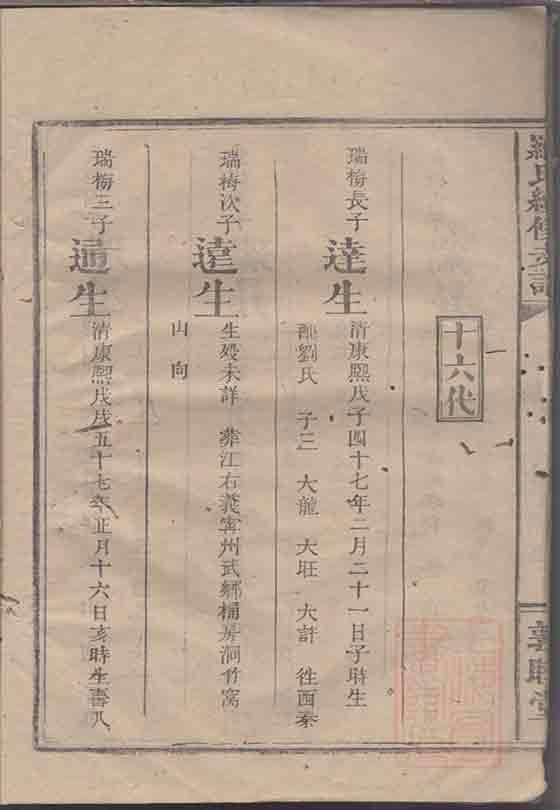 氏續修支譜
十六代
瑞梅長子
達生
清康熙戊子四十七年二月二十一日子時生
配劉氏 子三 大龍 大旺 大許 徃西秦
瑞梅次子
遠生
生歿未詳 葬江右義寧州武鄉桶房洞竹窩
山向
瑞梅三子
通生
清康熙戊戌五十七年正月十六日亥時生壽八